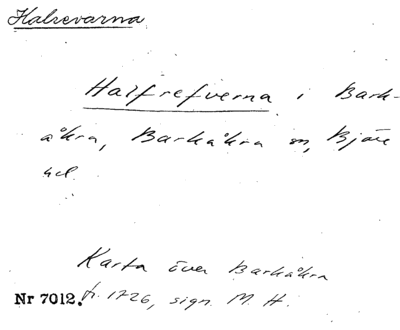 Halrevarna
Halfrefverna i Bark-
åkra, Barkåkra sn, Bjäre
hd.
Karta över Barkåkra
Nr 7012. fr. 1726, sign. M. H.